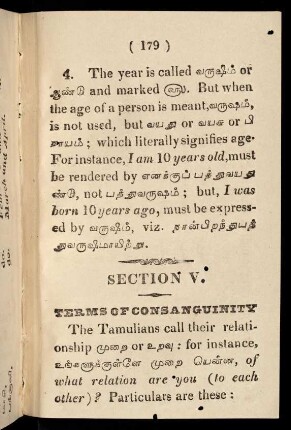 ( 179 )
4. The year is called வருஷம் or
ஆண்டு and marked ௵. But when
the age of a person is meant, வருஷம்,
is not used, but வயது or வயசு or பி
ராயம் ; which literally signifies age.
For instance, I am 10 years old, must
be rendered by எனக்குப் பத்துவயது
ண்டு, not பத்துவருஷம் ; but, I was
born 10 years ago, must be express-
ed by வருஷம், viz. நான்பிறந்துபத்
துவருஷமாயிற்று.
SECTION V.
TERMS OF CONSANGUINITY
The Tamulians call their relati-
onship முறை or உறவு : for instance,
உங்களுக்குள்ளே முறை யென்ன, of
what relation are you (to each
other) ? Particulars are these :
March and April.